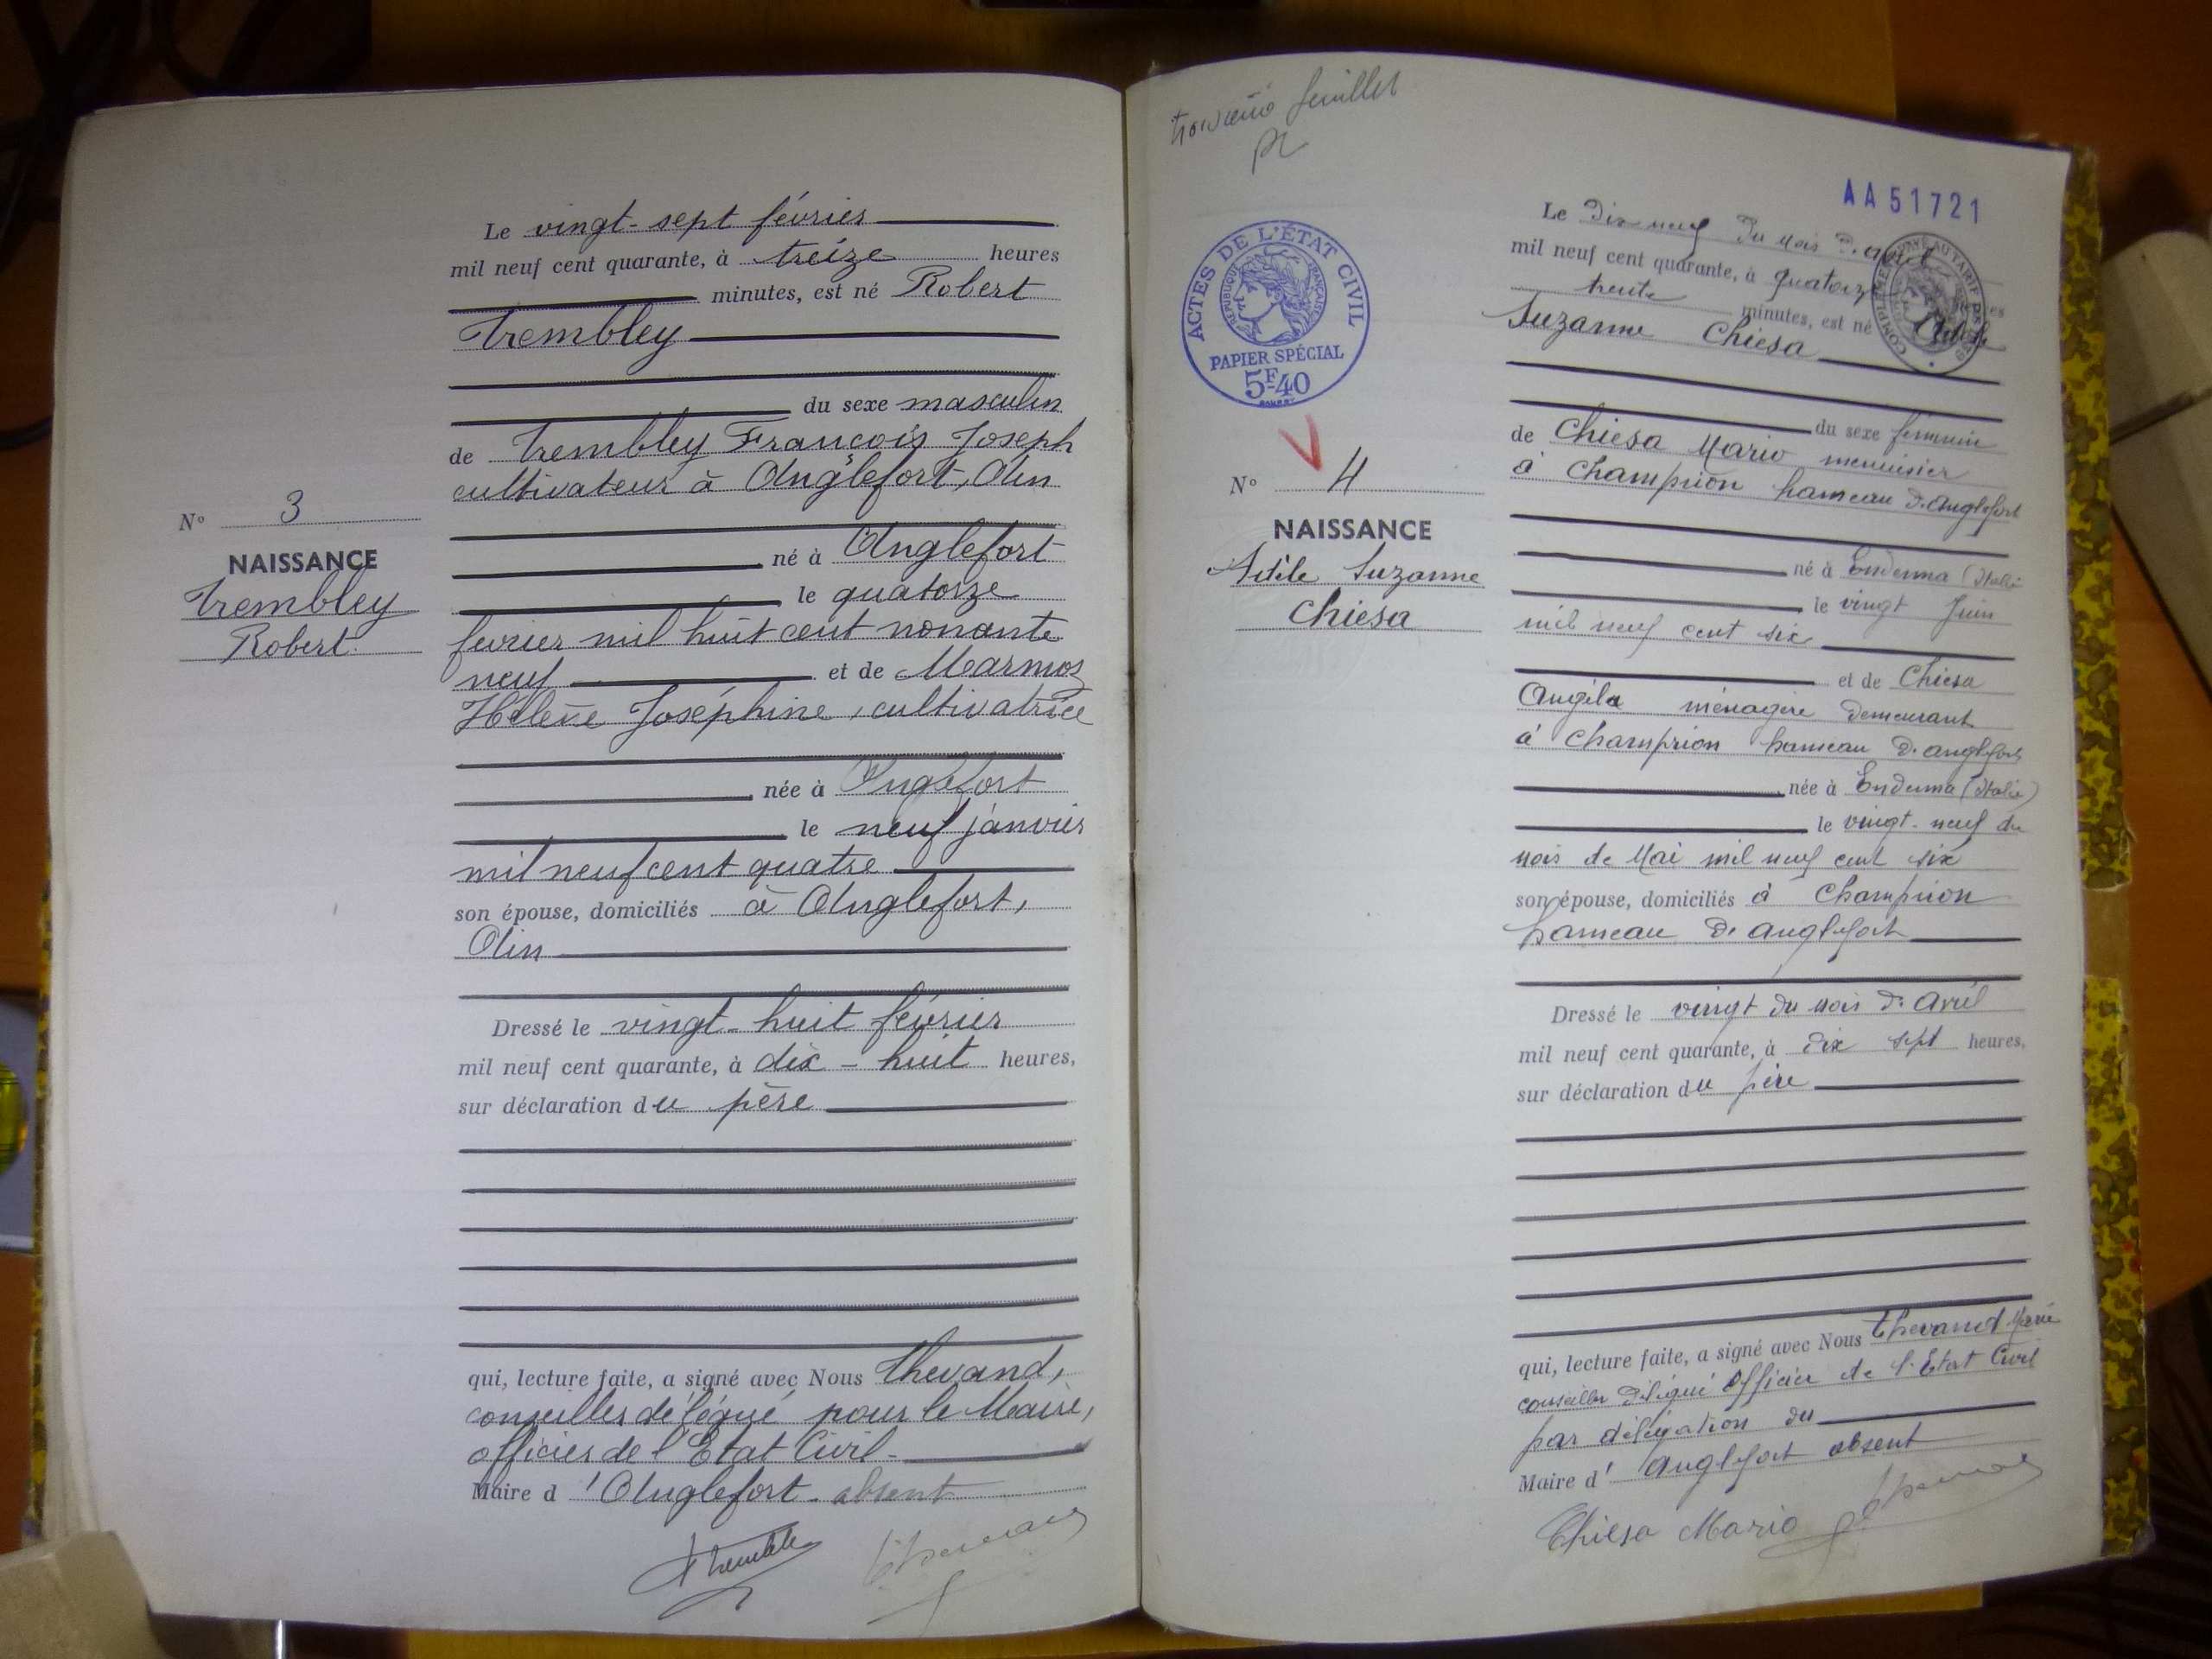 Le vingt-sept février
mil neuf cent quarante, à treize heures
minutes, est né Robert
Trembley
du sexe masculin
de Trembley François Joseph
cultivateur à Anglefort, Ain
né à Anglefort
le quatorze
février mil huit cent nonante
neuf et de Marmoz
Hélène Joséphine, cultivatrice
née à Anglefort
le neuf janvier
mil neuf cent quatre
son épouse, domiciliés à Anglefort,
Ain
Dressé le vingt-huit février
mil neuf cent quarante, à dix-huit heures,
sur déclaration du père
qui, lecture faite, a signé avec Nous Thevand,
conseiller délégué pour le Maire,
officier de l'Etat Civil
Maire d'Anglefort absent
N° 3
NAISSANCE
Trembley
Robert
feuillet
AA51721
ACTES DE L'ÉTAT CIVIL
RÉPUBLIQUE FRANÇAISE
PAPIER SPÉCIAL
5F40
N° 4
NAISSANCE
Adèle Suzanne
Chiesa
Le Dix neuf du mois d'avril
mil neuf cent quarante, à quatorze heures
trente minutes, est né Adèle
Suzanne Chiesa
du sexe féminin
de Chiesa Mario menuisier
à Champrion hameau d'anglefort
né à Endenna (Italie
le vingt Juin
mil neuf cent six
et de Chiesa
Angéla ménagère demeurant
à Champrion hameau d'anglefort
née à Endenna (Italie)
le vingt-neuf du
mois de Mai mil neuf cent six
son épouse, domiciliés à Champrion
hameau d'anglefort
Dressé le vingt du mois d'avril
mil neuf cent quarante, à dix sept heures,
sur déclaration du père
qui, lecture faite, a signé avec Nous Thevand Marie
conseiller délégué officier de l'Etat Civil
par délégation du
Maire d'Anglefort absent
Chiesa Mario